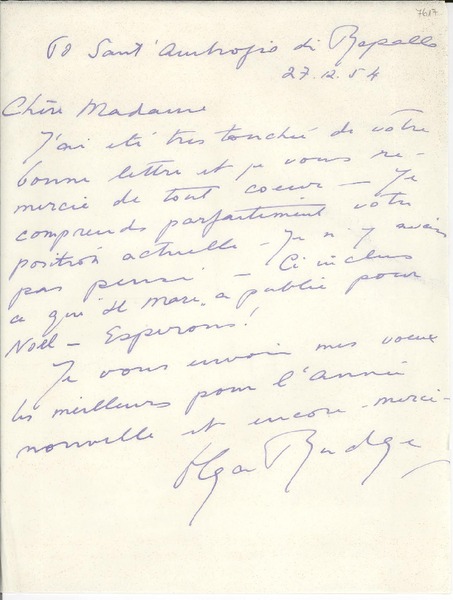 7617
60 Sant'Ambrogio di Rapallo
27.12.54
Chère Madame
J'ai été tres touchée de votre
bonne lettre et je vous re-
mercie de tout coeur — Je
comprends parfaitement votre
position actuelle — Je n'y avais
pas pensé — Ci inclus
ce que Il Mare a publié pour
Noël — Esperons!
Je vous envoie mes voeux
les meilleurs pour l'Année
nouvelle et encore — merci —
Olga Rudge